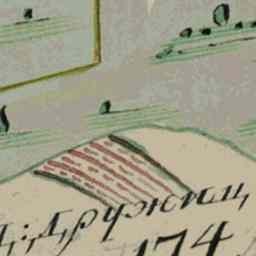 Д:Дружиц
174